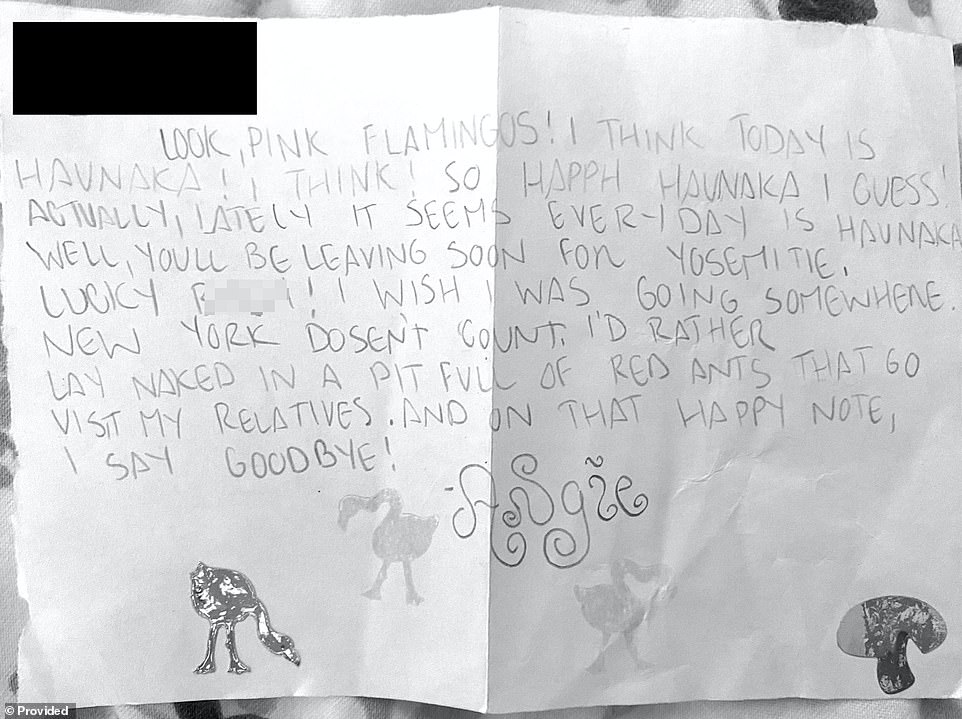 LOOK, PINK FLAMINGOS! I THINK TODAY IS
HAUNAKA! I THINK! SO HAPPH HAUNAKA I GUESS!
ACTUALLY, LATELY IT SEEMS EVERYDAY IS HAUNAKA
WELL, YOULL BE LEAVING SOON FOR YOSEMITIE.
LUCKY ! I WISH I WAS GOING SOMEWHERE.
NEW YORK DOSENT COUNT. I'D RATHER
LAY NAKED IN A PIT FULL OF RED ANTS THAT GO
VISIT MY RELATIVES. AND ON THAT HAPPY NOTE,
I SAY GOODBYE!
-ANgie
© Provided